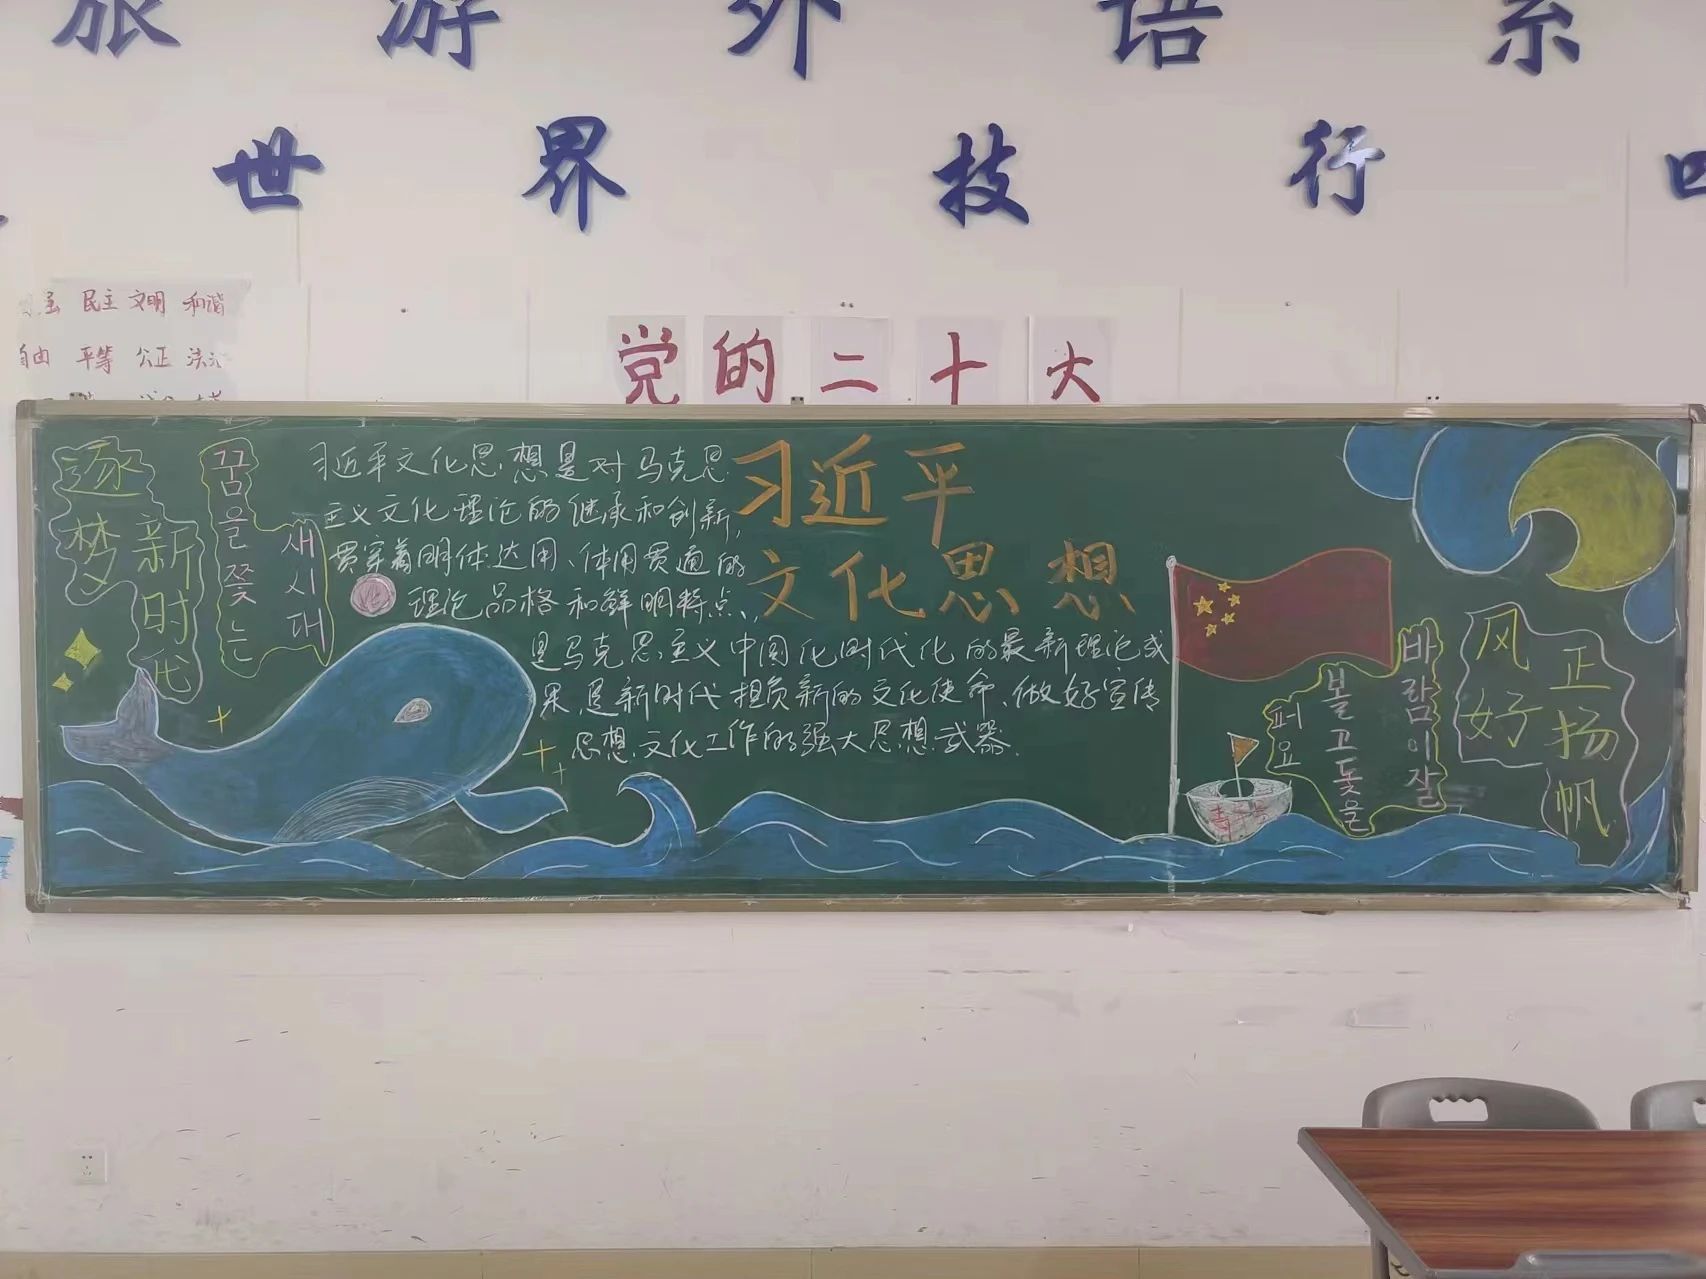 旅游外语系
世界技行
民主 文明 和谐
自由 平等 公正 法治
党的二十大
逐梦
新时代
꿈을쫓는
새시대
习近平文化思想是对马克思
主义文化理论的继承和创新,
贯穿着明体达用、体用贯通的
理论品格和鲜明特点,
是马克思主义中国化时代化的最新理论成
果,是新时代担负新的文化使命、做好宣传
思想文化工作的强大思想武器.
习近平
文化思想
바람이잘
볼고돛을
펴요
风好
正扬帆